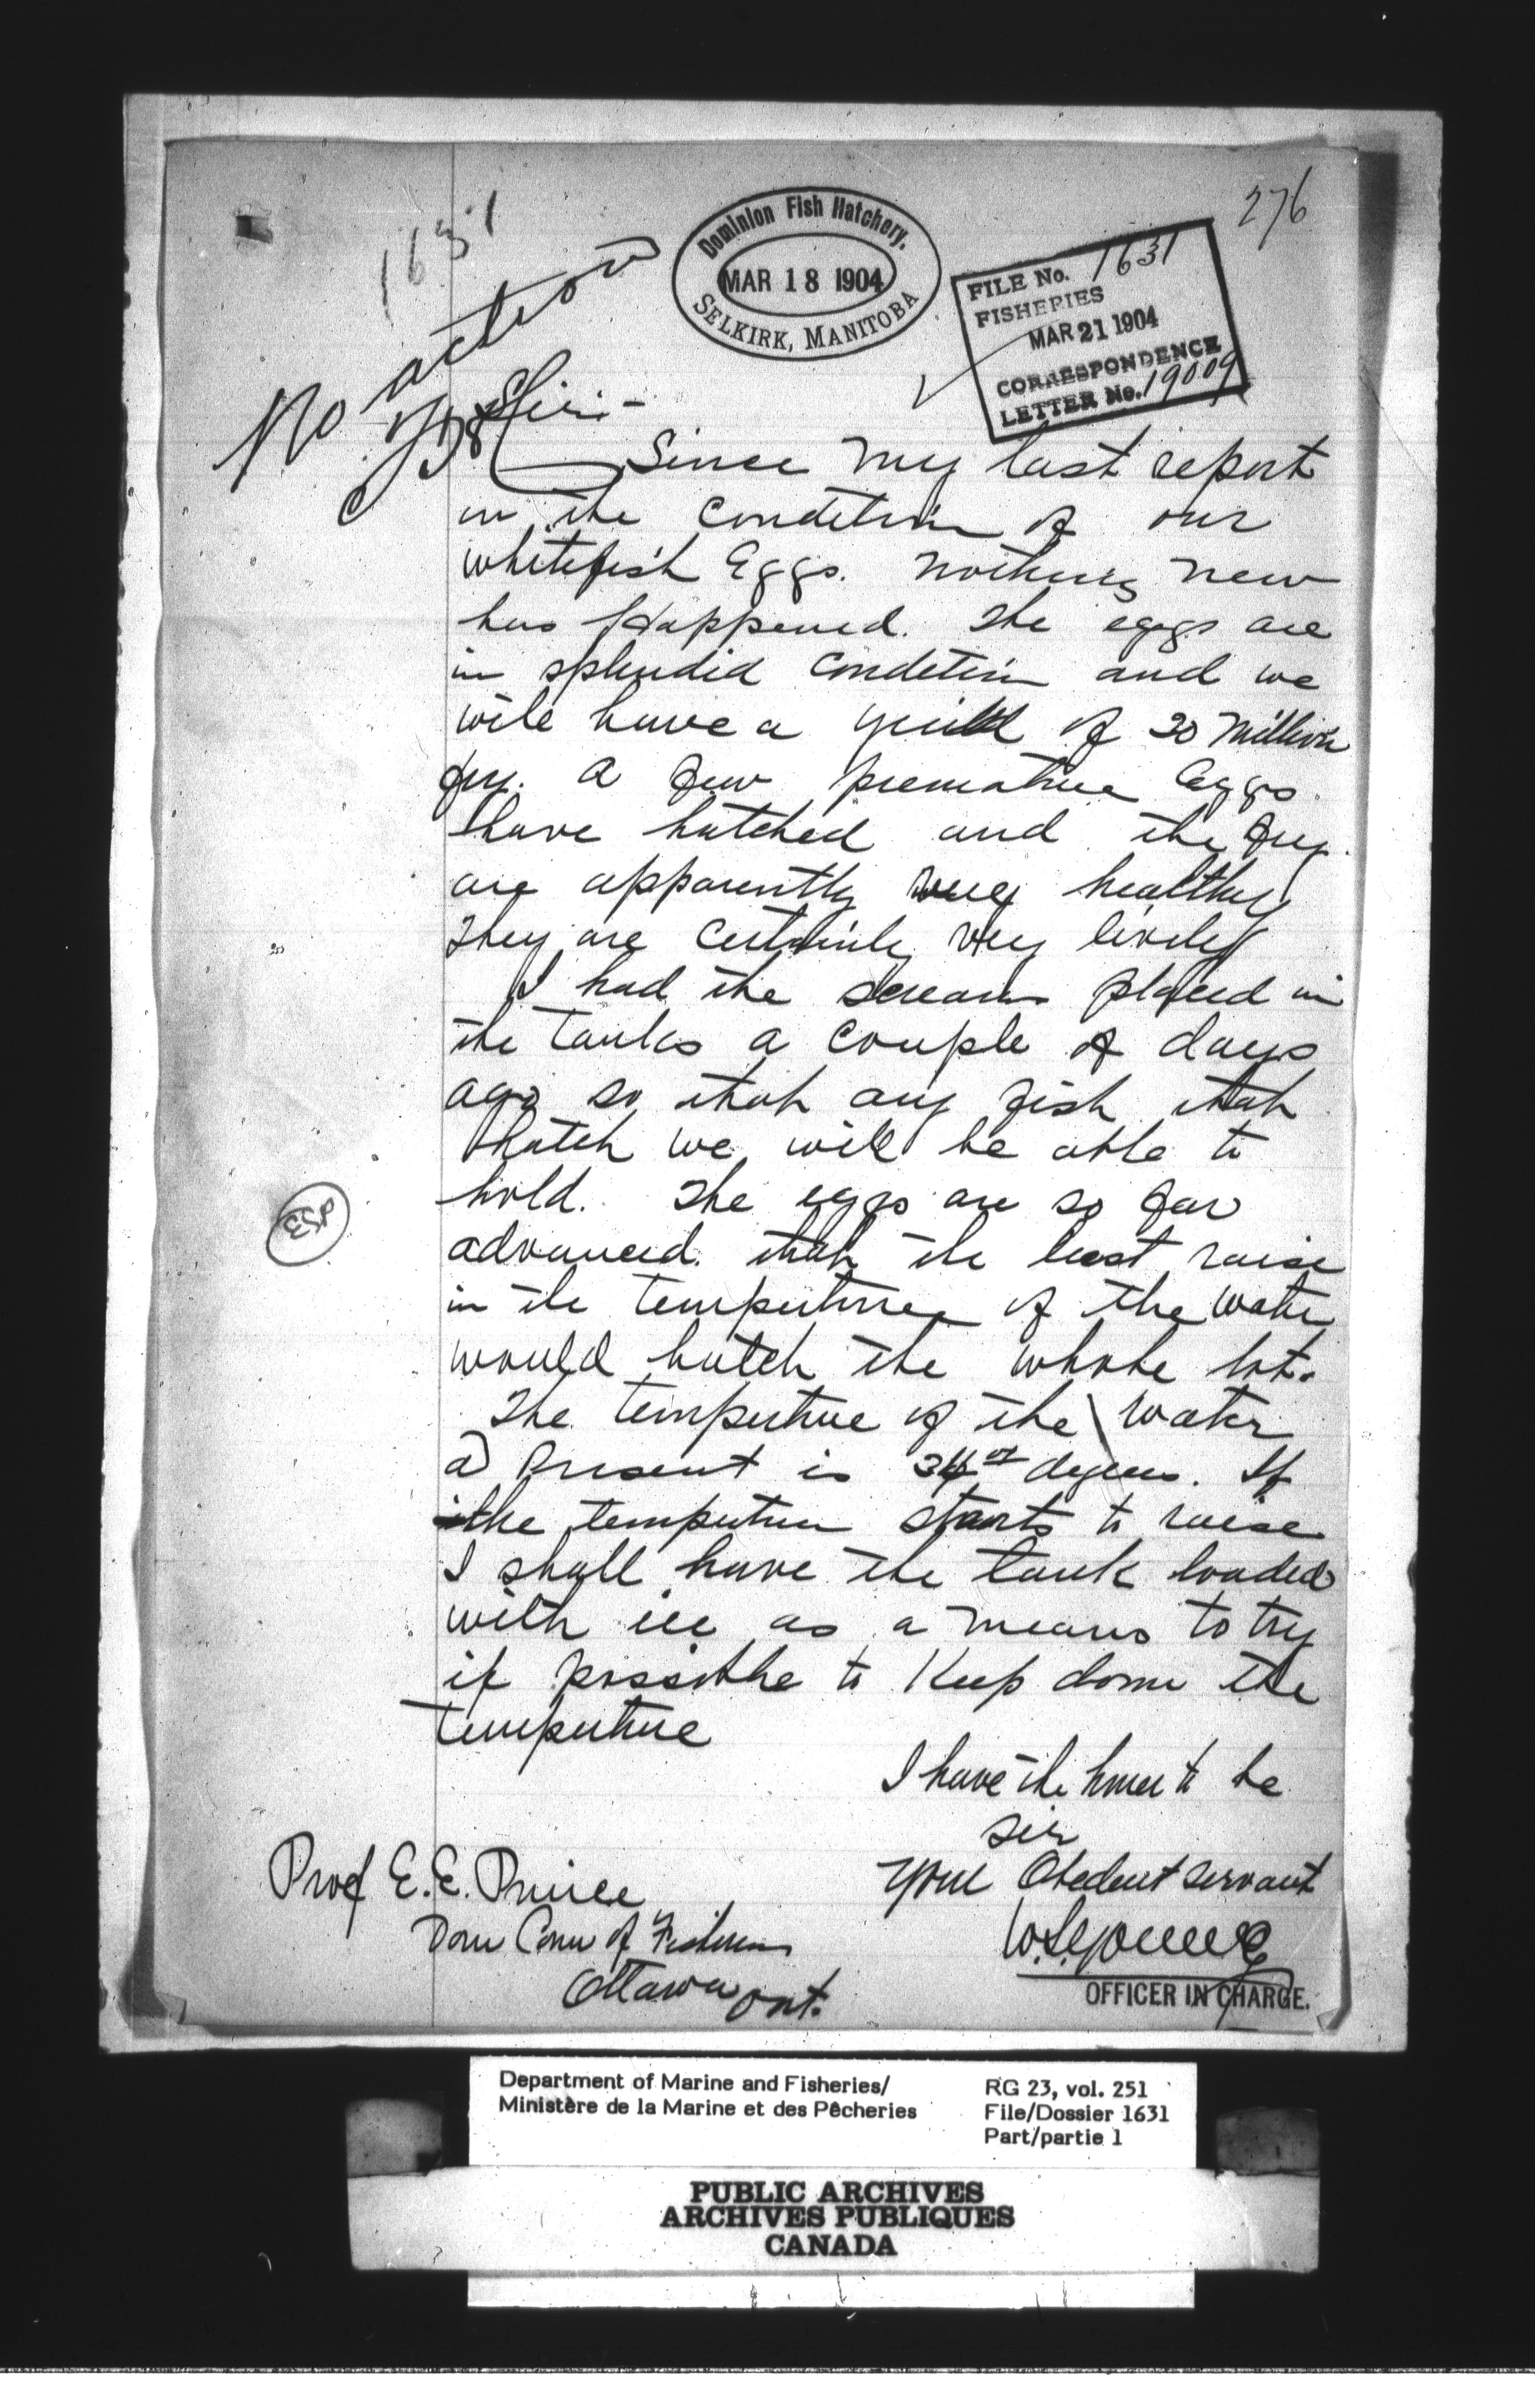 276
1631
Dominion Fish Hatchery.
MAR 18 1904
SELKIRK, MANITOBA
FILE No. 1631
FISHERIES
MAR 21 1904
CORRESPONDENCE
LETTER No. 19009
No action
Sir:-
Since my last report
on the condition of our
whitefish Eggs. nothing new
has Happened. The eggs are
in splendid condition and we
will have a yield of 20 million
fry. A few premature eggs
have hatched and the fry
are apparently very healthy
They are certainly very lively
I had the screans placed in
the tanks a couple of days
ago so that any fish that
hatch we will be able to
hold. The eggs are so far
advanced that the least raise
in the temperture of the water
would hatch the whole lot.
The temperture of the water
at Present is degrees. If
the temperture starts to raise
I shall have the tank loaded
with ice as a means to try
if possible to Keep down the
temperture
I have the honor to be
Sir
Your Obedient servant
W.S. Young
OFFICER IN CHARGE.
Prof E.E. Prince
Dom Com of Fisheries
Ottawa Ont.
Department of Marine and Fisheries/
Ministère de la Marine et des Pêcheries
RG 23, vol. 251
File/Dossier 1631
Part/partie 1
PUBLIC ARCHIVES
ARCHIVES PUBLIQUES
CANADA